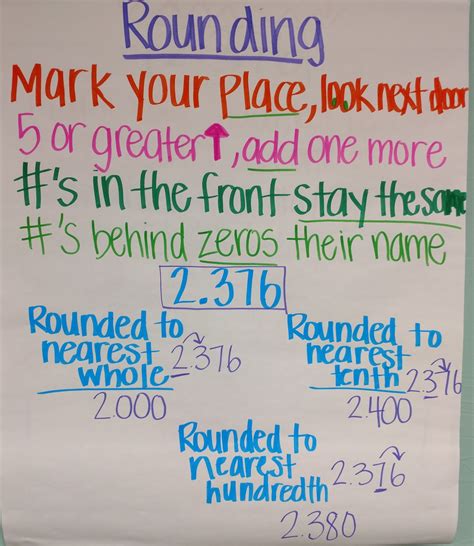 Rounding
Mark your place, look next door
5 or greater↑, add one more
#'s in the front stay the same
#'s behind zeros their name
2.376
Rounded to
nearest
whole 2.376
2.000
Rounded to
nearest
tenth 2.376
2.400
Rounded to
nearest
hundredth 2.376
2.380